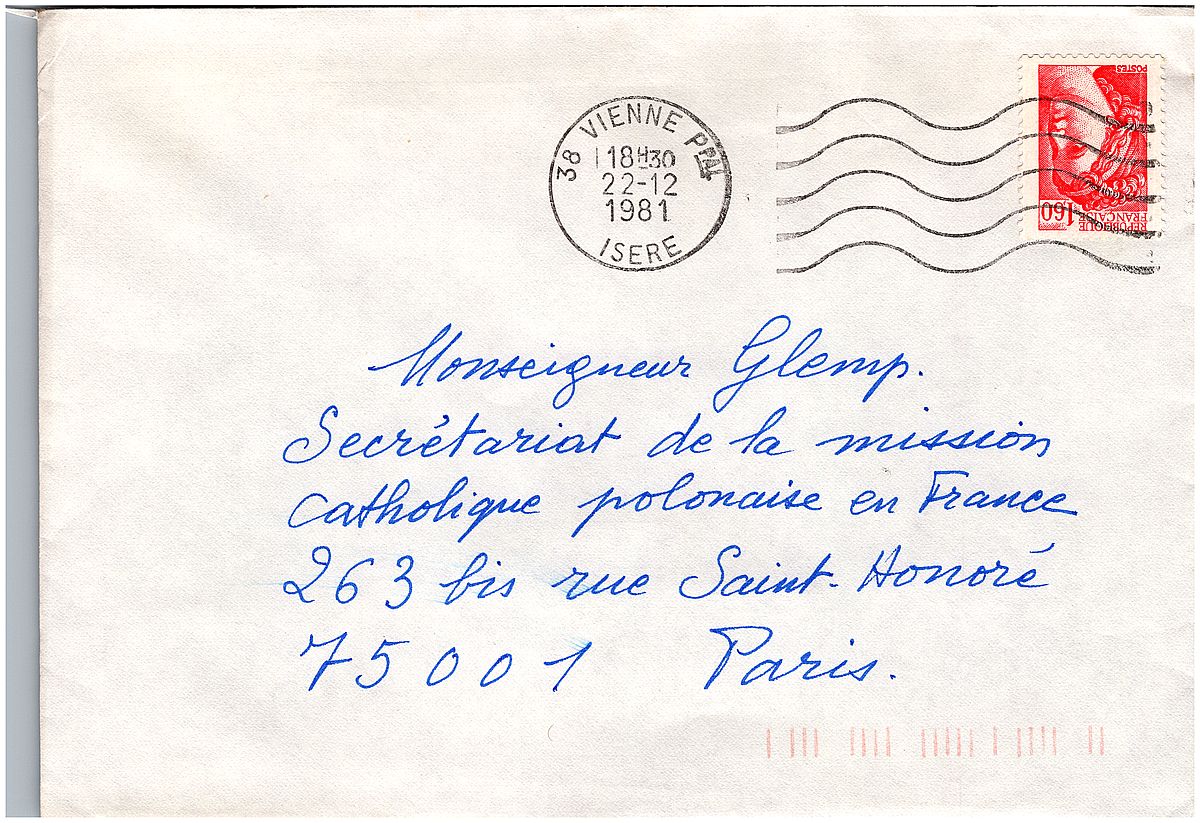 38 VIENNE PPAL
18H30
22-12
1981
ISERE
POSTES
1,60
REPUBLIQUE
FRANÇAISE
Monseigneur Glemp.
Secrétariat de la mission
catholique polonaise en France
263 bis rue Saint-Honoré
75001 Paris.